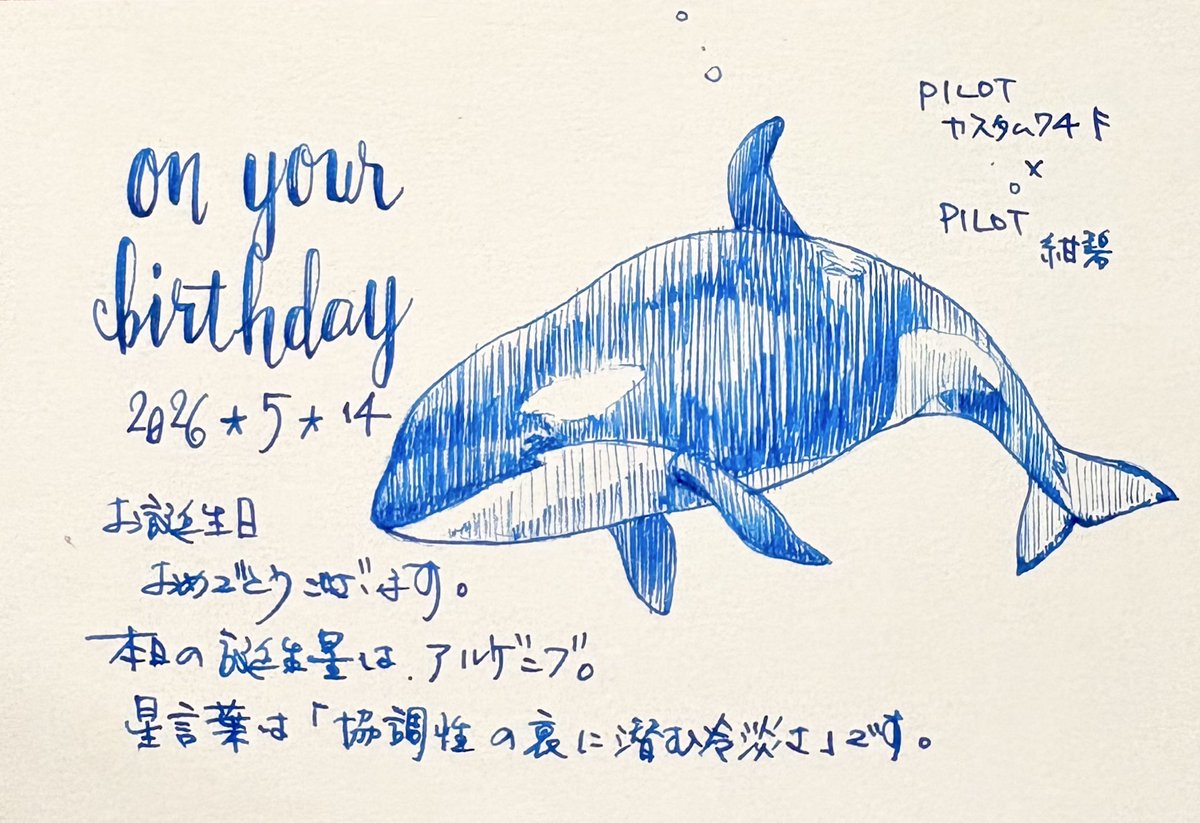 on your
birthday
2026★5★14
お誕生日
おめでとうございます。
本日の誕生星は、アルゲニブ。
星言葉は「協調性の裏に潜む冷淡さ」です。
PILOT
カスタム74 F
×
PILOT
紺碧